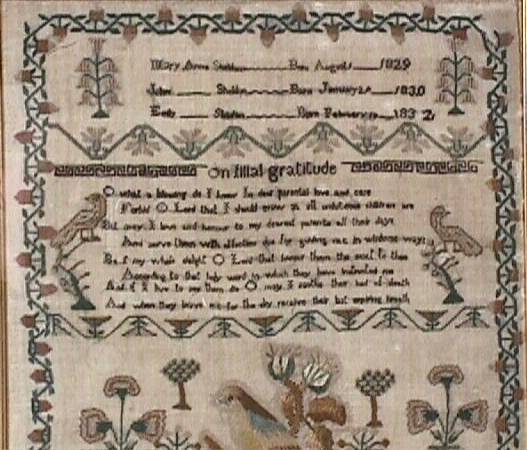 Mary Anne Born August 1829
John Born January 1830
Born February 1832
On filial gratitude
O what a blessing do I know in dear parental love and care
Forbid O Lord that I should prove as all undutious children are
But may I love and honour to my dearest parents all their days
And serve them with affection due for guiding me in wisdoms ways
Be it my whole delight O Lord that honour them the next to thee
According to that holy word in which they have instructed me
And if I live to see them die O may I soothe their bed of death
And when they leave me for the sky receive their last expiring breath